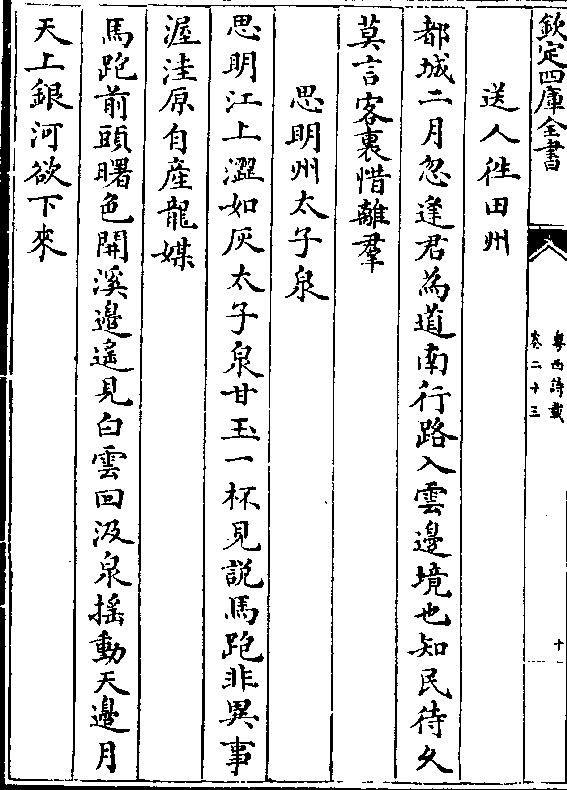 欽定四庫全書
粵西詩載
卷二十三
十
送人徃田州
都城二月忽逢君為道南行路入雲邊境也知民待久
莫言客裏惜離羣
思明州太子泉
思明江上澀如灰太子泉甘玉一杯見説馬跑非異事
渥洼原自産龍媒
馬跑前頭曙色開溪邉遥見白雲回汲泉揺動天邉月
天上銀河欲下來